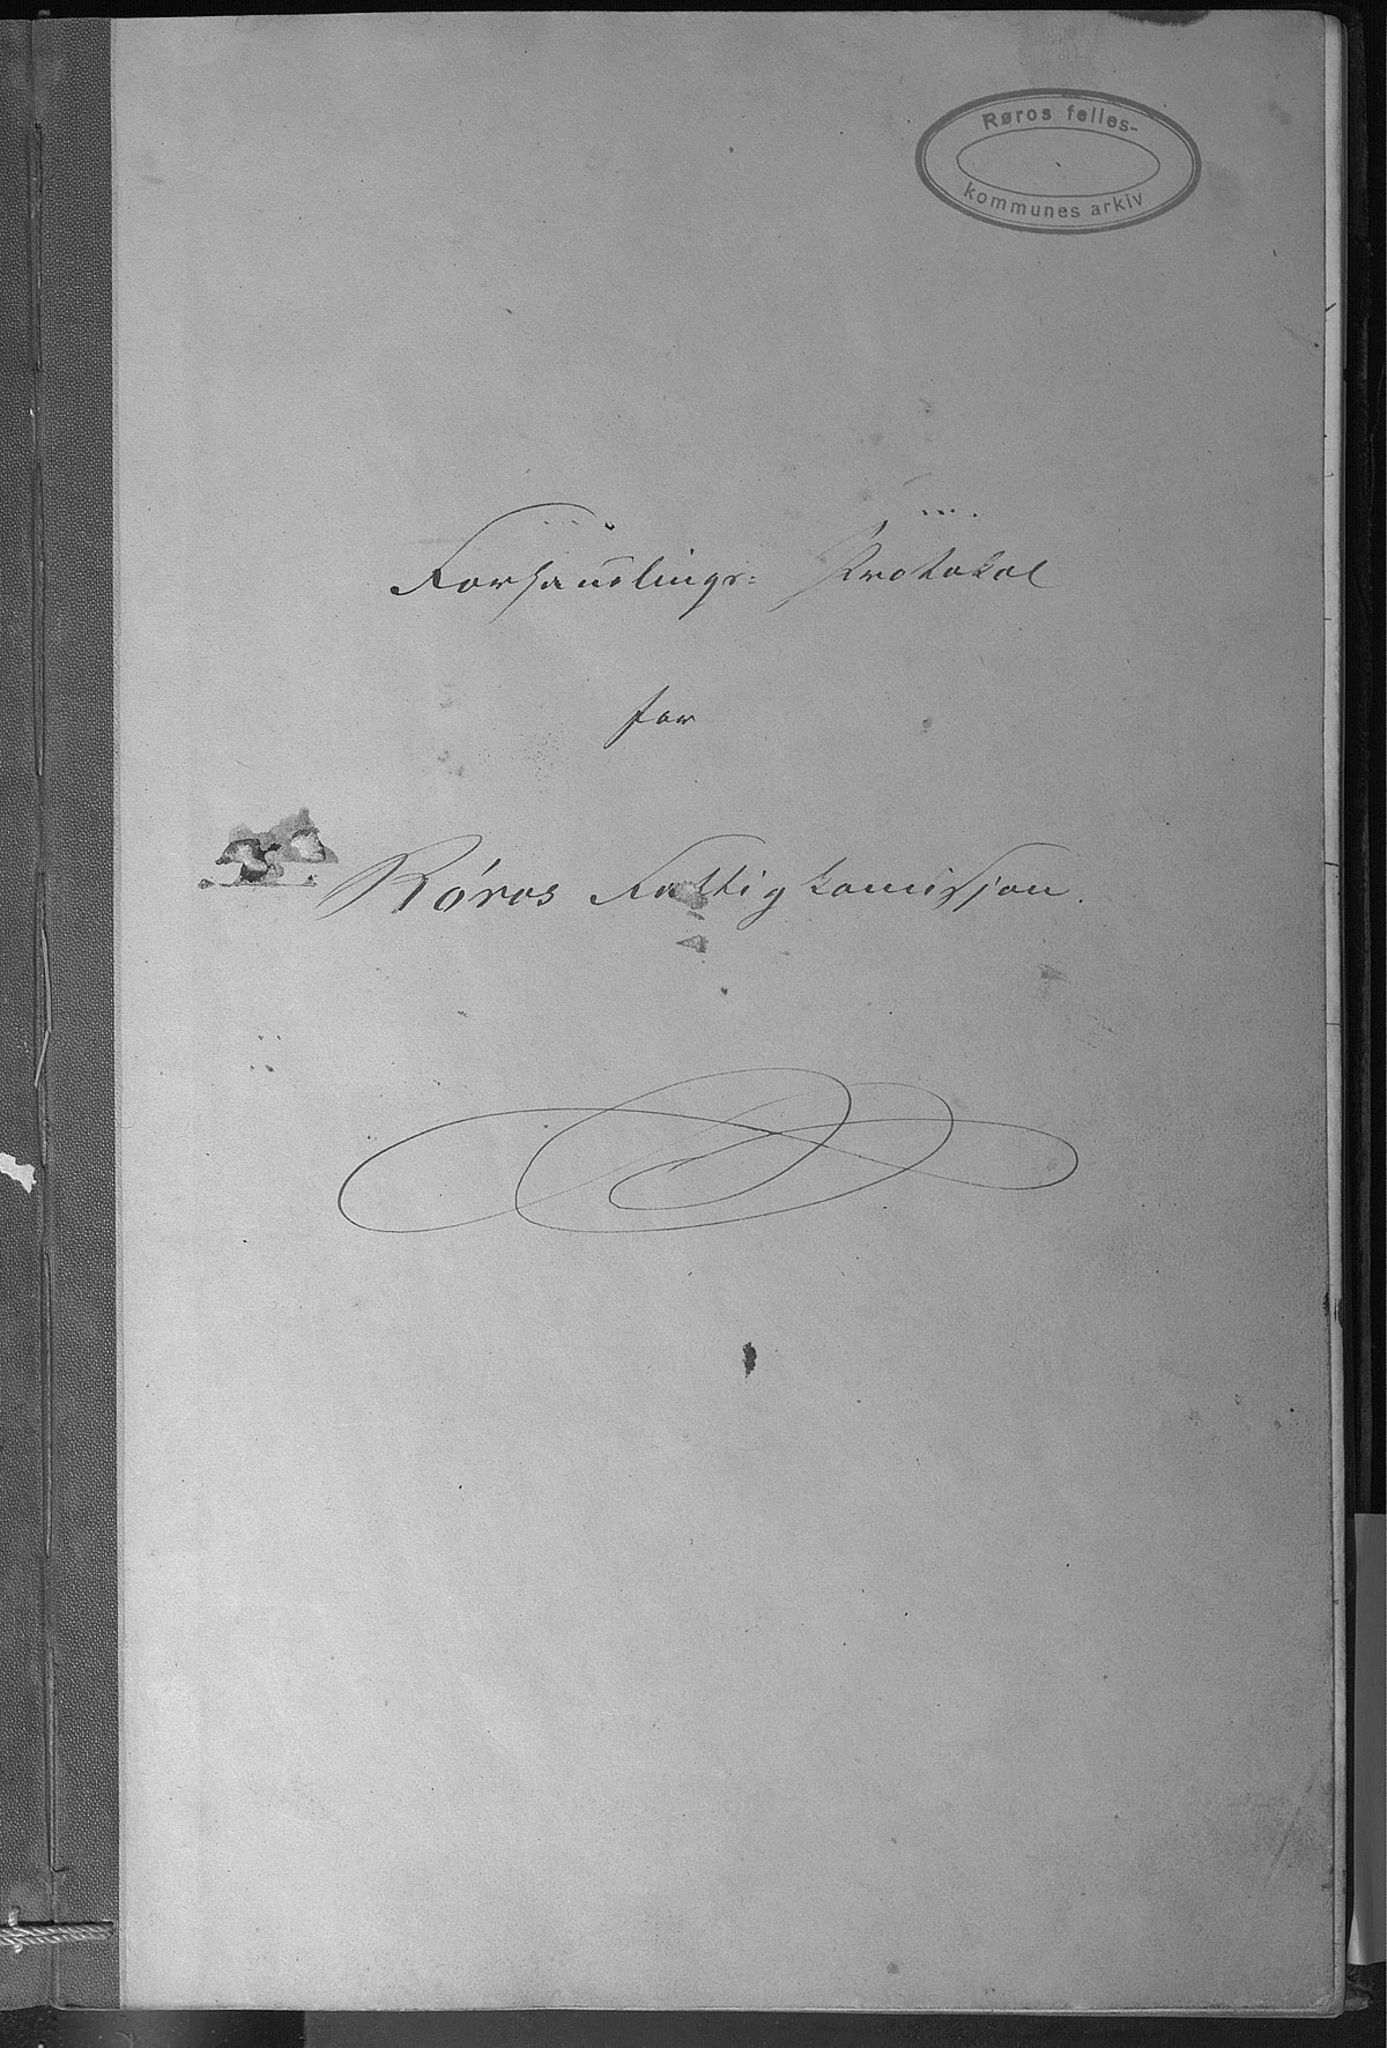 Røros felles-
kommunes arkiv
Forhandlings= Protokol
for
Røros Fattigkomisjon.